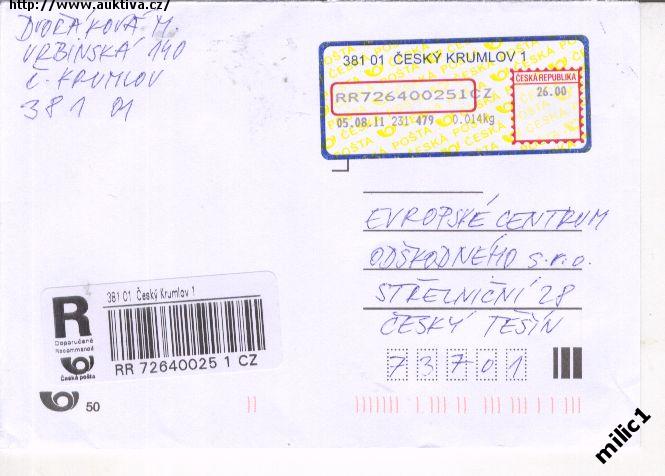 http://www.auktiva.cz/
DVOŘÁKOVÁ M.
URBINSKÁ 140
Č. KRUMLOV
381 01
381 01 ČESKÝ KRUMLOV 1
RR726400251CZ
ČESKÁ REPUBLIKA
26.00
05.08.11 231 479 0.014kg
EVROPSKÉ CENTRUM
ODŠKODNÉHO s.r.o.
STŘELNIČNÍ 28
ČESKÝ TĚŠÍN
73701
R
Doporučeně
Recommandé
Česká pošta
381 01 Český Krumlov 1
RR 72640025 1 CZ
50
milic1